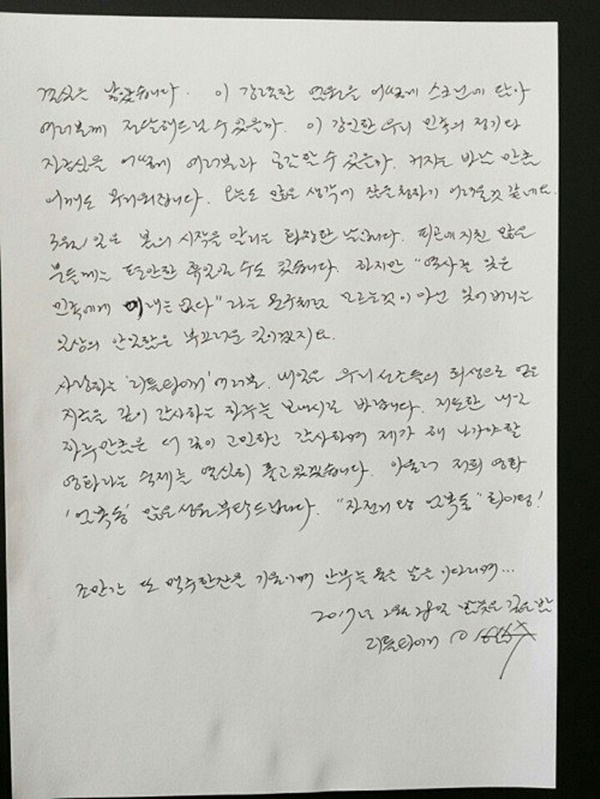 결심은 날았습니다. 이 강렬한 연혁을 어떻게 스크린에 담아
여러분께 전달해드릴 수 있을까. 이 강인한 우리 민족의 정기와
자긍심을 어떻게 여러분과 공감할 수 있을까. 커지는 바람 만큼
어깨도 무거워집니다. 오늘도 많은 생각에 잠을 청하기 어려울것 같네요.
3월 1일은 봄의 시작을 알리는 화창한 날입니다. 피곤에 지친 많은
분들께는 편안한 휴일일 수도 있습니다. 하지만 "역사를 잊은
민족에게 미래는 없다" 라는 문구처럼 모르는 것이 아닌 잊어버리는
일상의 안일함은 부끄러운 일이겠지요.
사랑하는 '리틀타이거' 여러분. 내일은 우리 선조들의 희생으로 얻은
지금을 깊이 감사하는 하루를 보내시길 바랍니다. 저또한 내일
하루만큼은 더 깊이 고민하고 감사하며 제가 해 나가야할
영화라는 숙제를 열심히 풀고 있겠습니다. 아울러 저희 영화
'엄복동' 많은 성원 부탁드립니다. "자전차왕 엄복동" 화이팅!
조만간 또 맥주한잔을 기울이며 안부를 물을 날을 기다리며...
2017년 2월 28일 깊은 밤
리틀타이거